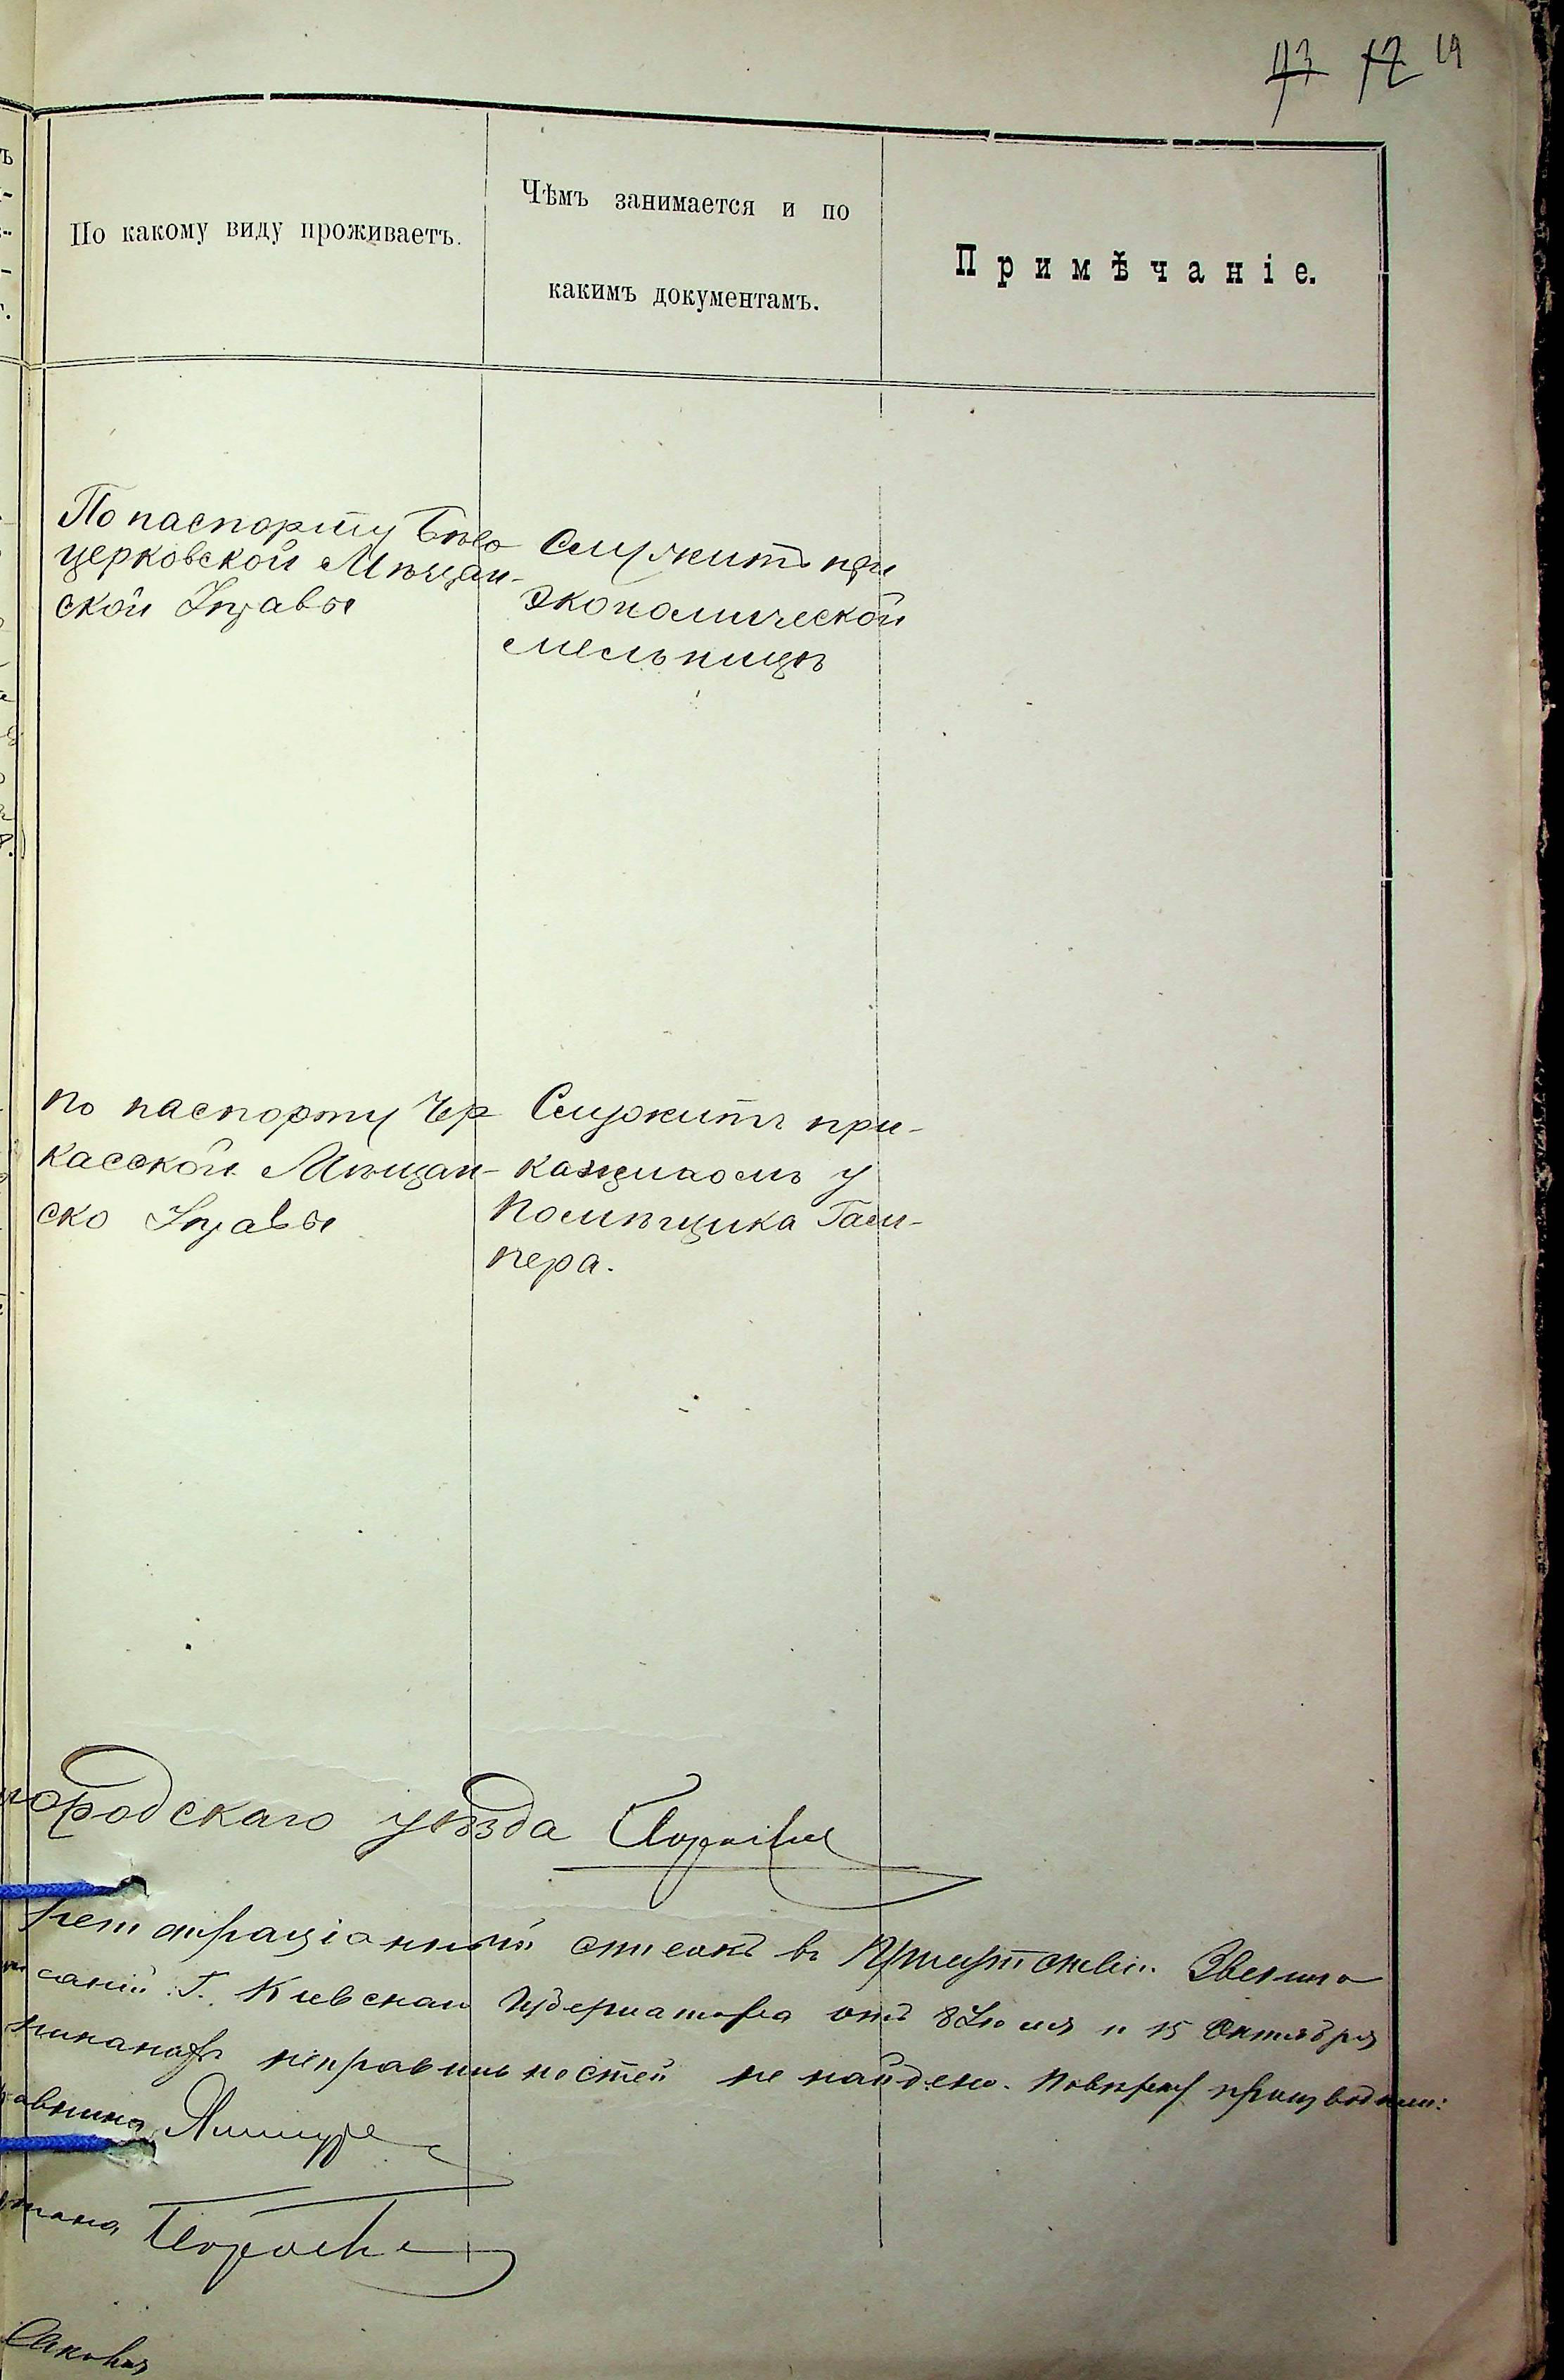 73 72 19
По какому виду проживаетъ.
Чѣмъ занимается и по
какимъ документамъ.
Примѣчаніе.
По паспорту Бѣло
церковской Мѣщан-
ской Управы
Служитъ при
экономической
мельницѣ
по паспорту Чер
касской Мѣщан-
ско Управы
Служитъ при-
кащикомъ у
Помѣщика Гам-
пера.
городскаго уѣзда
списокъ въ Присутствіи Звениго
Г. Кіевскаго Губернатора отъ 8 Іюля и 15 Октября
никакихъ неправильностей не найдено. Повѣрку производили: